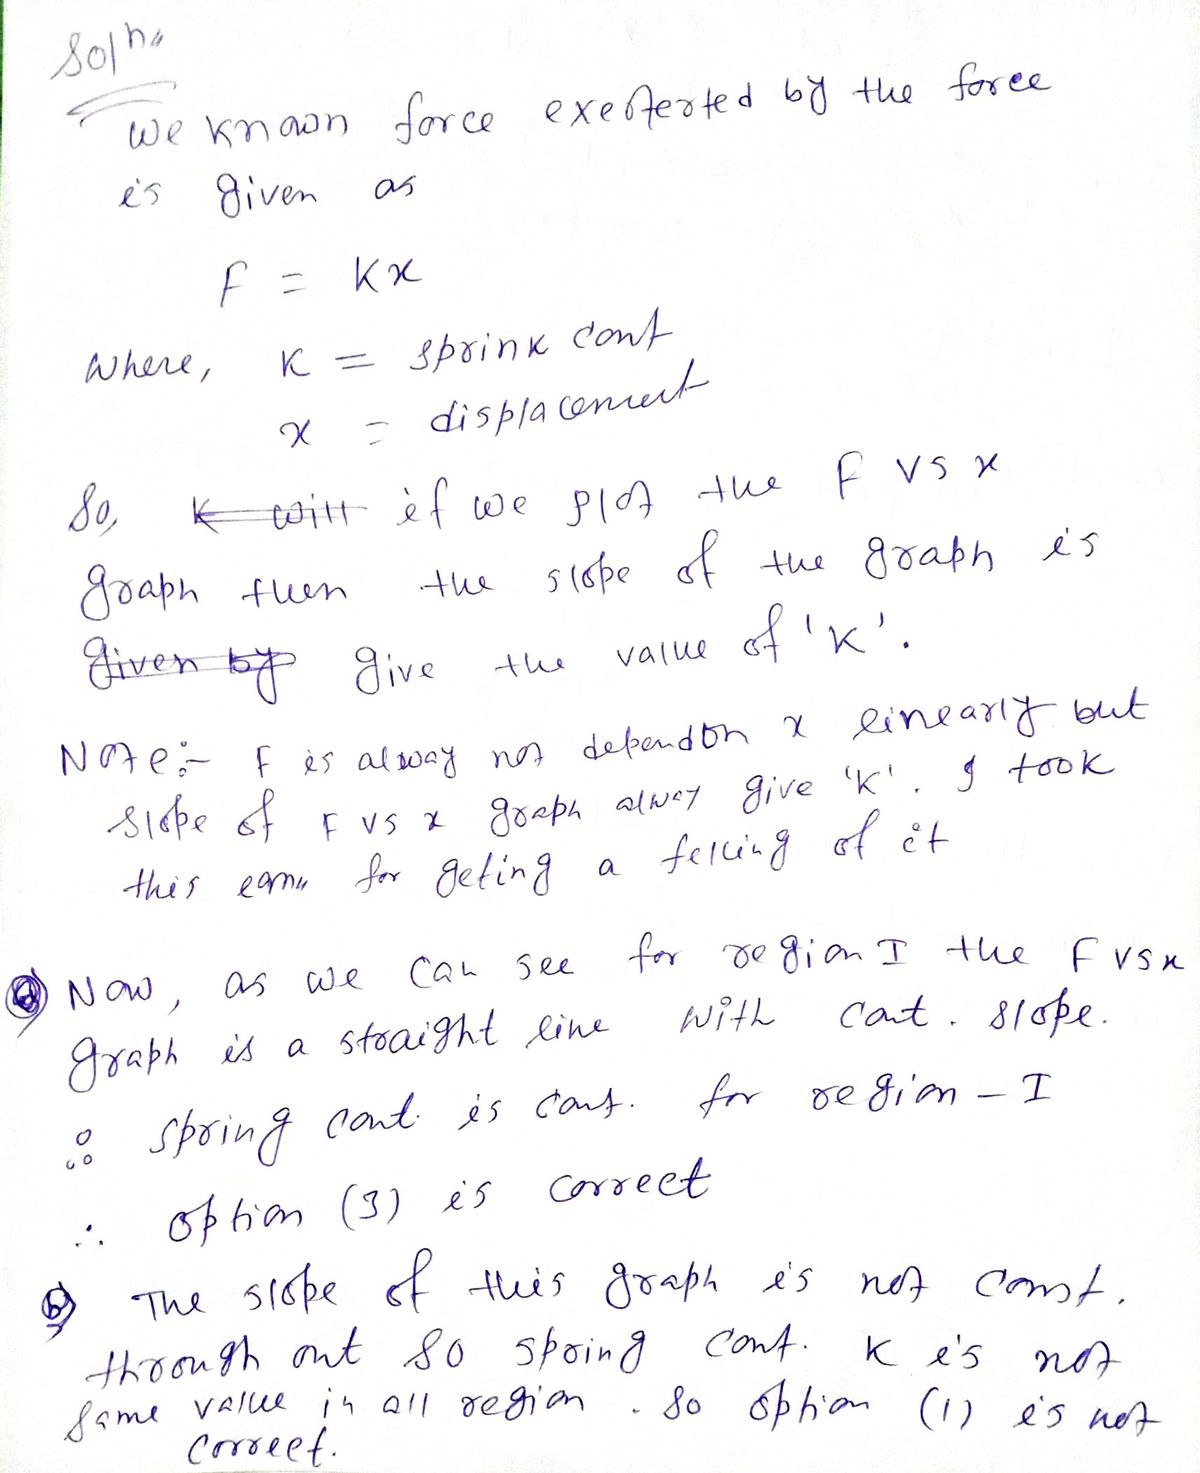 Solⁿ.
We known force exerterted by the force
is given as
F = Kx
Where, K = sprink cont
x = displacement
So, K will if we plot the F vs x
graph then the slope of the graph is
given by give the value of 'K'.
Note:- F is alway not dependon x linearly but
slope of F vs x graph alwey give 'K'. I took
this for geting a felling of it
(a) Now, as we can see for region I the F vs x
graph is a straight line with cont. slope.
∴ spring cont. is cont. for region - I
∴ option (3) is correct
(b) The slope of this graph is not const.
through out so spring cont. K is not
same value in all region. So option (1) is not
correct.